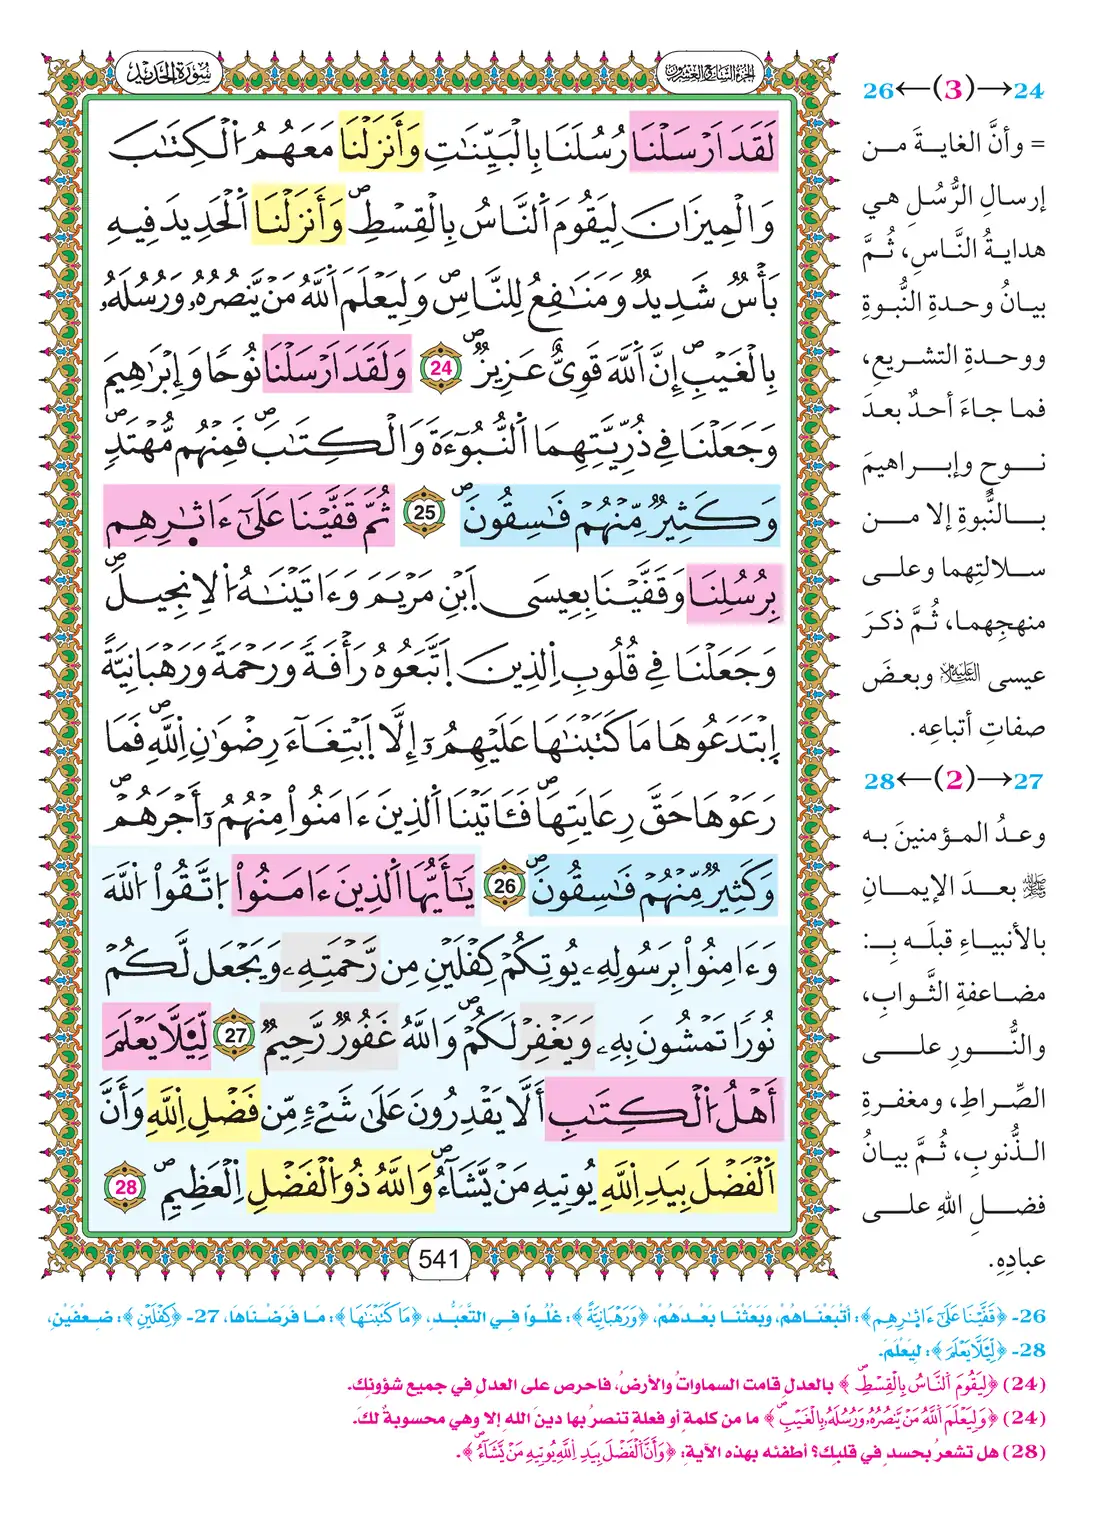 الجزء السابع والعشرون
سورة الحديد
لَقَدَ اَرْسَلْنَا رُسُلَنَا بِالْبَيِّنَٰتِ وَأَنزَلْنَا مَعَهُمُ اُلْكِتَٰبَ
وَالْمِيزَانَ لِيَقُومَ اَلنَّاسُ بِالْقِسْطِۖ وَأَنزَلْنَا اَلْحَدِيدَ فِيهِ
بَأْسٞ شَدِيدٞ وَمَنَٰفِعُ لِلنَّاسِۖ وَلِيَعْلَمَ اَللَّهُ مَنْ يَّنصُرُهُۥ وَرُسُلَهُۥ
بِالْغَيْبِۖ إِنَّ اَللَّهَ قَوِيٌّ عَزِيزٞۖ 24 وَلَقَدَ اَرْسَلْنَا نُوحًا وَإِبْرَٰهِيمَ
وَجَعَلْنَا فِي ذُرِّيَّتِهِمَا اَلنُّبُوٓءَةَ وَالْكِتَٰبَۖ فَمِنْهُم مُّهْتَدٖۖ
وَكَثِيرٞ مِّنْهُمْ فَٰسِقُونَۖ 25 ثُمَّ قَفَّيْنَا عَلَىٰٓ ءَاثٰ۪رِهِم
بِرُسُلِنَا وَقَفَّيْنَا بِعِيسَى اَبْنِ مَرْيَمَ وَءَاتَيْنَٰهُ اُلِانجِيلَۖ
وَجَعَلْنَا فِي قُلُوبِ اِلذِينَ اَتَّبَعُوهُ رَأْفَةٗ وَرَحْمَةٗ وَرَهْبَانِيَّةً
اِبْتَدَعُوهَا مَا كَتَبْنَٰهَا عَلَيْهِمُۥٓ إِلَّا اَبْتِغَآءَ رِضْوَٰنِ اِللَّهِۖ فَمَا
رَعَوْهَا حَقَّ رِعَايَتِهَاۖ فَـَٔاتَيْنَا اَلذِينَ ءَامَنُواْ مِنْهُمُۥٓ أَجْرَهُمْۖ
وَكَثِيرٞ مِّنْهُمْ فَٰسِقُونَۖ 26 يَٰٓأَيُّهَا اَلذِينَ ءَامَنُواْ اُتَّقُواْ اُللَّهَ
وَءَامِنُواْ بِرَسُولِهِۦ يُوتِكُمْ كِفْلَيْنِ مِن رَّحْمَتِهِۦ وَيَجْعَل لَّكُمْ
نُورٗا تَمْشُونَ بِهِۦ وَيَغْفِرْ لَكُمْۖ وَاللَّهُ غَفُورٞ رَّحِيمٞ 27 لِّيَ۬لَّا يَعْلَمَ
أَهْلُ اُلْكِتَٰبِ أَلَّا يَقْدِرُونَ عَلَىٰ شَيْءٖ مِّن فَضْلِ اِللَّهِ وَأَنَّ
اَلْفَضْلَ بِيَدِ اِللَّهِ يُوتِيهِ مَنْ يَّشَآءُۖ وَاللَّهُ ذُو اُلْفَضْلِ اِلْعَظِيمِۖ 28
541
26←(3)→24
= وأنَّ الغاية من
إرسالِ الرُّسُلِ هي
هدايةُ النَّاسِ، ثُمَّ
بيانُ وحدةِ النُّبوةِ
ووحدةِ التشريعِ،
فما جاءَ أحدٌ بعدَ
نوحٍ وإبراهيمَ
بالنُّبوةِ إلا من
سلالتِهما وعلى
منهجِهما، ثُمَّ ذكرَ
عيسى عليه السلام وبعضَ
صفاتِ أتباعِه.
28←(2)→27
وعدُ المؤمنينَ به
ﷺ بعدَ الإيمانِ
بالأنبياءِ قبلَه بـ:
مضاعفةِ الثَّوابِ،
والنُّورِ على
الصِّراطِ، ومغفرةِ
الذُّنوبِ، ثُمَّ بيانُ
فضلِ اللهِ على
عبادِهِ.
26- ﴿قَفَّيْنَا عَلَىٰٓ ءَاثٰ۪رِهِم﴾: أَتْبَعْنَاهُمْ، وَبَعَثْنَا بَعْدَهُمْ، ﴿وَرَهْبَانِيَّةً﴾: غُلُواً فِي التَّعَبُّدِ، ﴿مَا كَتَبْنَٰهَا﴾: مَا فَرَضْنَاهَا، 27- ﴿كِفْلَيْنِ﴾: ضِعْفَيْنِ،
28- ﴿لِّيَ۬لَّا يَعْلَمَ﴾: لِيَعْلَمَ.
(24) ﴿لِيَقُومَ اَلنَّاسُ بِالْقِسْطِۖ﴾ بالعدلِ قامت السماواتُ والأرضُ، فاحرص على العدلِ في جميع شؤونِك.
(24) ﴿وَلِيَعْلَمَ اَللَّهُ مَنْ يَّنصُرُهُۥ وَرُسُلَهُۥ بِالْغَيْبِۖ﴾ ما من كلمةٍ أو فعلةٍ تنصرُ بها دينَ اللهِ إلا وهي محسوبةٌ لكَ.
(28) هل تشعرُ بحسدٍ في قلبِك؟ أطفئه بهذه الآيةِ: ﴿وَأَنَّ اَلْفَضْلَ بِيَدِ اِللَّهِ يُوتِيهِ مَنْ يَّشَآءُۖ﴾.